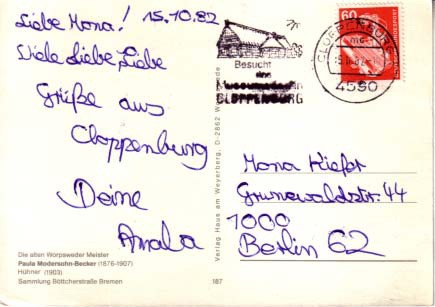 Liebe Mona! 15.10.82
Viele Liebe Liebe
Grüße aus
Cloppenburg
Deine
Amala
Die alten Worpsweder Meister
Paula Modersohn-Becker (1876-1907)
Hühner (1903)
Sammlung Böttcherstraße Bremen
187
Verlag Haus am Weyerberg, D-2862
Besucht
das
CLOPPENBURG
CLOPPENBURG
4590
60
DEUTSCHE BUNDESPOST
Mona Kiefer
Grunewaldstr. 44
1000
Berlin 62